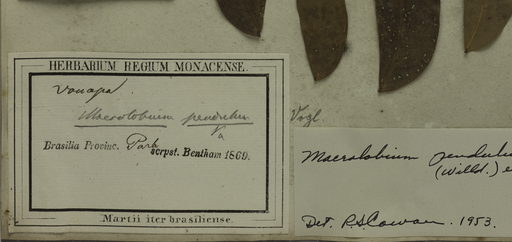 HERBARIUM REGIUM MONACENSE.
Vouapa
Macrolobium pendulum
Brasilia Provinc. Para
scrpst. Bentham 1869.
Martii iter brasiliense.
Vogl.
Macrolobium pendulu
(Willd.)
Det. R.S. Cowan. 1953.